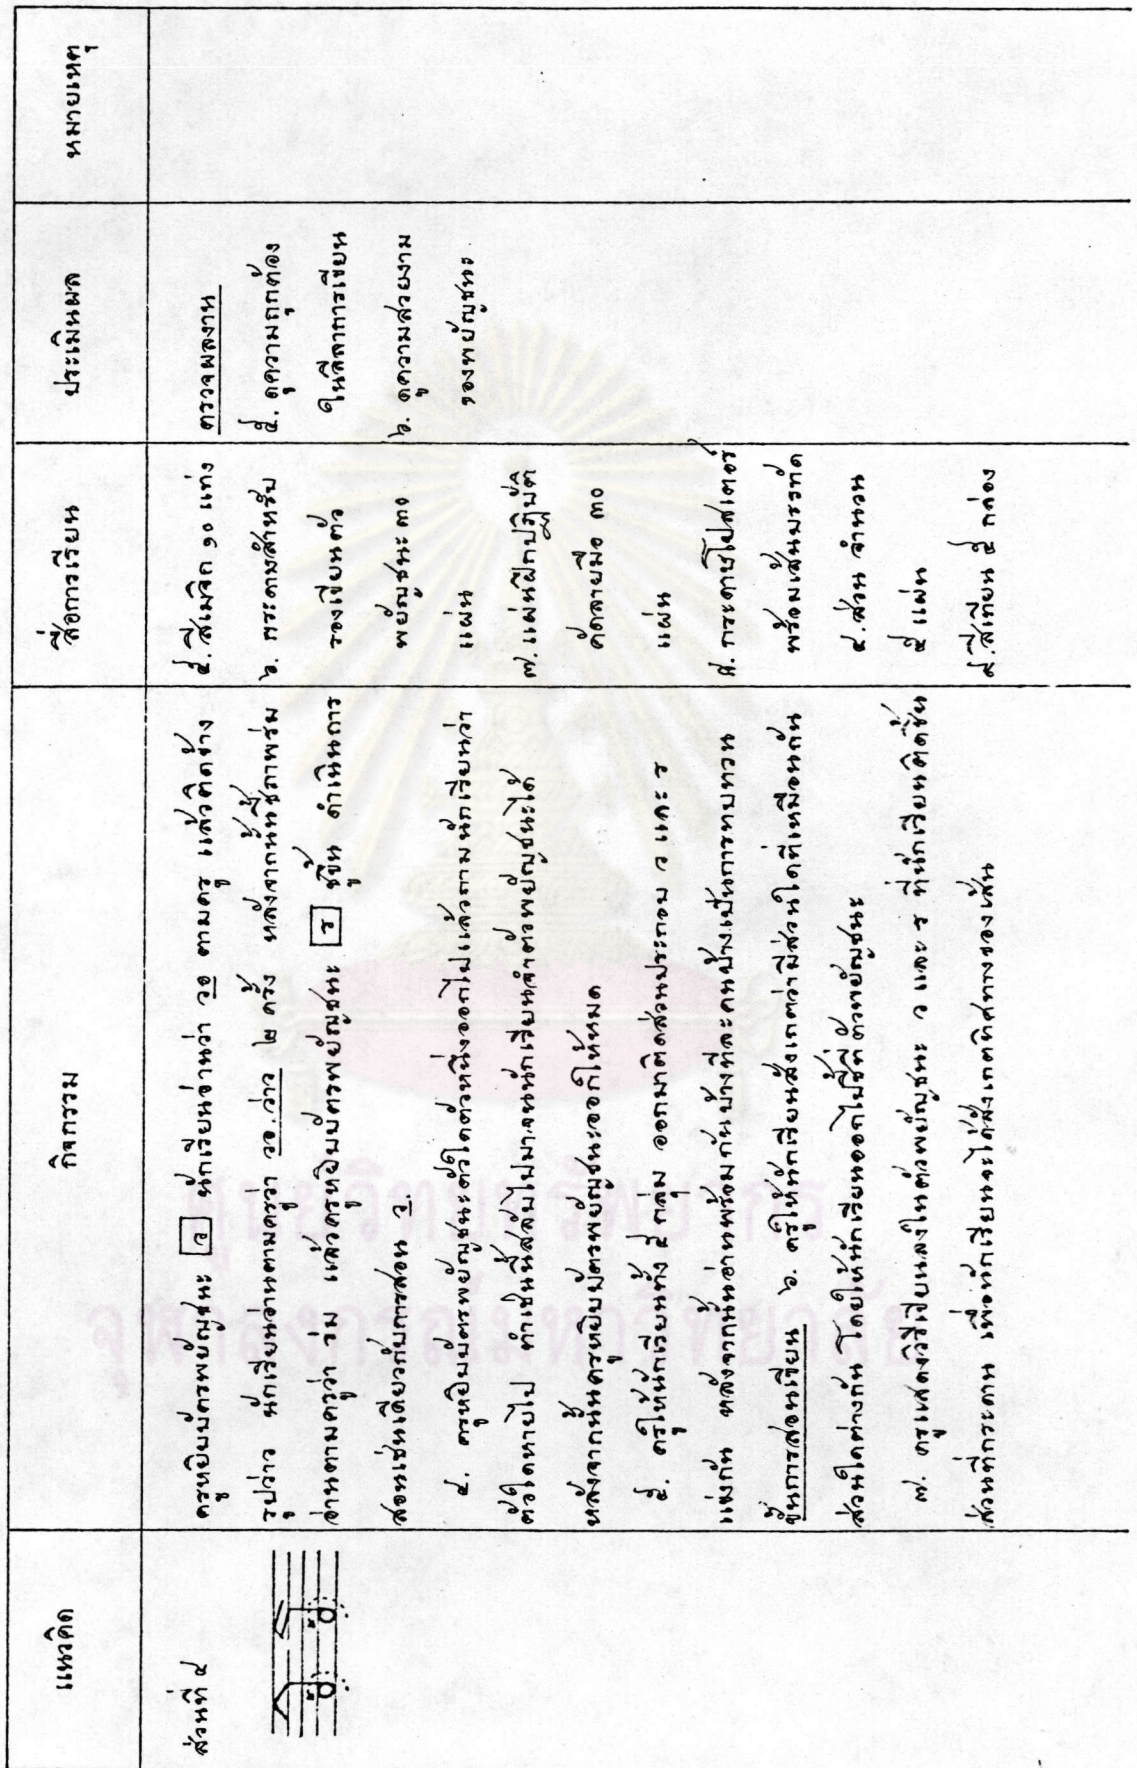 แนวคิด
กิจกรรม
สื่อการเรียน
ประเมินผล
หมายเหตุ
ส่วนที่ ๔
ครูหยิบบัตรพยัญชนะ ว นักเรียนอ่านว่า วอ ตามครู แล้วติดข้าง
รูปราว นักเรียนอ่านตามครูว่า วอ.ราว ๒ ครั้ง หลังจากนั้นชี้ภาพร่ม
อ่านตามครูว่า ร่ม แล้วครูหยิบบัตรพยัญชนะ ร ชูขึ้น ดำเนินการ
สอนเช่นเดียวกับการสอน ว.
๔. ครูหยิบบัตรพยัญชนะตัวใดตัวหนึ่งออกไปแล้วถามนักเรียนว่า
ตัวใดหายไป ทำเช่นนี้สลับไปมาจนนักเรียนจำตัวพยัญชนะได้
หลังจากนั้นครูหยิบบัตรพยัญชนะออกให้หมด
๕. ครูให้นักเรียนทั้ง ๕ กลุ่ม ออกมาติดส่วนประกอบ ว และ ร
แข่งกัน หลังจากนั้นอ่านพร้อมกันบ้างทีละคนบ้างเป็นการทบทวน
ขั้นการสอนเขียน ๖. ครูให้นักเรียนสังเกตว่ามีส่วนใดที่เหมือนกัน
ส่วนใดต่างกัน โดยให้นักเรียนออกไปชี้ที่ตัวพยัญชนะ
๗. ครูแสดงวิธีเขียนลงในตัวพยัญชนะ ว และ ร ที่นักเรียนติดชิ้น
ส่วนที่กระดาน เพื่อนักเรียนจะได้สังเกตทิศทางของเส้น
๕.สีเมจิก ๑๐ แท่ง
๖. กระดาษสำหรับ
รองเขียนตัว
พยัญชนะ ๓๐
แผ่น
๗. แผ่นฝึกปฏิบัติ
คัดลายมือ ๓๐
แผ่น
๘. กระดาษโปสเตอร์
พร้อมเส้นบรรทัด
๔.ส่วน จำนวน
๕ แผ่น
๙.สีเทียน ๕ กล่อง
ตรวจผลงาน
๕. ดูความถูกต้อง
ในลีลาการเขียน
๖. ดูความสวยงาม
ของพยัญชนะ
ศูนย์วิทยทรัพยากร
จุฬาลงกรณ์มหาวิทยาลัย